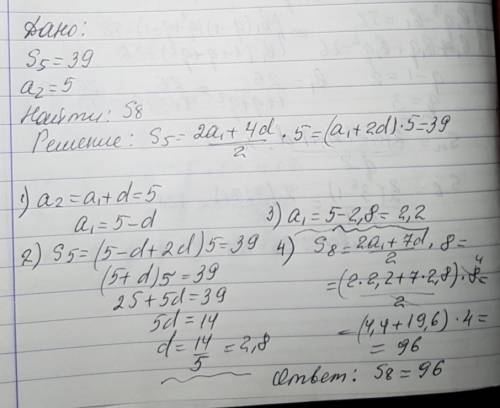 Дано:
S₅ = 39
a₂ = 5
Найти: S₈
Решение: S₅ = (2a₁ + 4d)/2 · 5 = (a₁ + 2d) · 5 = 39
1) a₂ = a₁ + d = 5
a₁ = 5 - d
2) S₅ = (5 - d + 2d) 5 = 39
(5 + d) 5 = 39
25 + 5d = 39
5d = 14
d = 14/5 = 2,8
3) a₁ = 5 - 2,8 = 2,2
4) S₈ = (2a₁ + 7d)/2 · 8 =
= (2 · 2,2 + 7 · 2,8)/2 · 8 4 =
= (4,4 + 19,6) · 4 =
= 96
Ответ: S₈ = 96